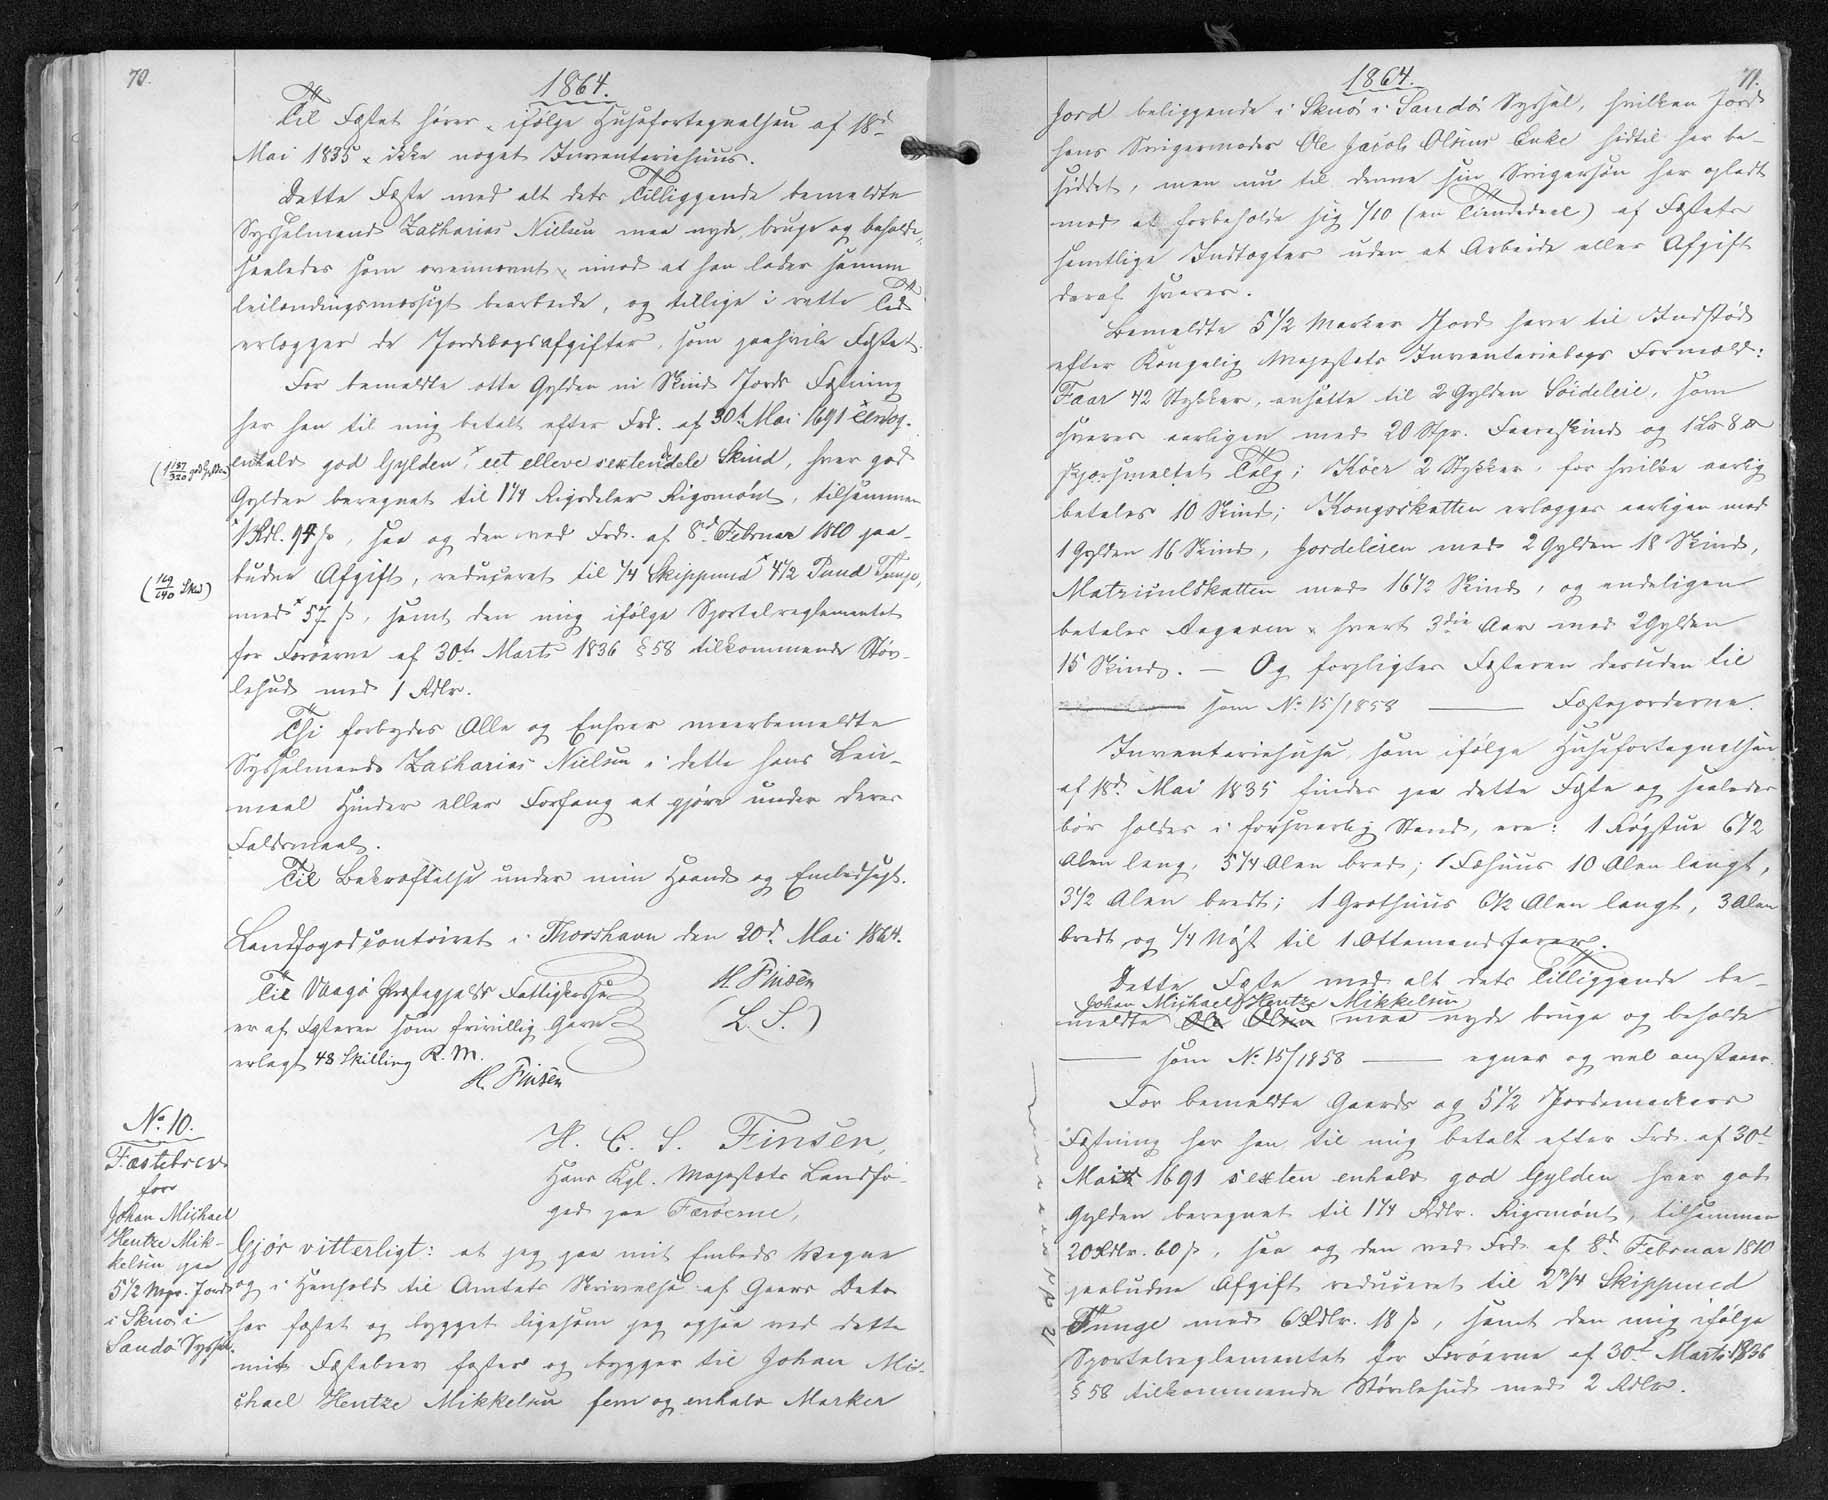 70.
1864.
Til Fæstet hører, ifølge Huusefortegnelsen af 18d
Mai 1835, ikke noget Inventariehuus.
Dette Fæste med alt dets Tilliggende bemeldte
Sysselmand Zacharias Nielsen maa nyde, bruge og beholde,
saaledes som ovenmeldt, imod at han lader samme
leilændingsmæssigt bearbeide, og tillige i rette Tid
erlægger de Jordebogsafgifter, som paahvile Fæstet.
For bemeldte otte Gylden ni Skind Jords Fæstning
har han til mig betalt efter Frd. af 30t Mai 1691 Een og
enhalv god Gylden, eet elleve sextendedele Skind, hver god
(1 157/320 god Gylden)
Gylden beregnet til 1 1/4 Rigsdaler Rigsmønt, tilsammen
1 Rdl. 94 ß, saa og den ved Frd. af 8d Februar 1810 paa-
budne Afgift, reduceret til 1/4 Skippund 4 1/2 Pund Tunge,
(169/240 Skd)
med 57 ß, samt den mig ifølge Sportelreglementet
for Færøerne af 30te Marts 1836 § 58 tilkommende Støv-
lehud med 1 Rdlr.
Thi forbydes Alle og Enhver meerbemeldte
Sysselmand Zacharias Nielsen i dette hans Leie-
maal Hinder eller Forfang at gjøre under deres
Faldsmaal.
Til Bekræftelse under min Haand og Embedssegl.
Landfogedcontoiret i Thorshavn den 20d Mai 1864.
Til Vaagø Præstegjelds Fattigkasse
er af Fæsteren som frivillig Gave
erlagt 48 Skilling R. M.
H. Finsen
H. Finsen
(L. S.)
No 10.
Fæstebrev
for
Johan Michael
Hentze Mik-
kelsen paa
5 1/2 Mrk. Jord
i Skuø i
Sandø Syssel.
H. C. S. Finsen,
Hans Kgl. Majestæts Landfo-
ged paa Færøerne,
Gjør vitterligt: at jeg paa mit Embeds Vegne
og i Henhold til Amtets Skrivelse af Gaars Dato
har fæstet og bygget ligesom jeg ogsaa ved dette
mit Fæstebrev fæster og bygger til Johan Mi-
chael Hentze Mikkelsen fem og enhalv Marker
1864.
71.
Jord beliggende i Skuø i Sandø Syssel, hvilken Jord
hans Svigermoder Ole Jacob Olsens Enke hidtil har be-
siddet, men nu til denne sin Svigersøn har opladt
mod at forbeholde sig 1/10 (en Tiendedeel) af Fæstets
samtlige Indtægter uden at Arbeide eller Afgift
deraf svares.
Bemeldte 5 1/2 Marker Jord have til Indstød
efter Kongelig Majestæts Inventariebogs Formeld:
Faar 42 Stykker, ansatte til 2 Gylden Søideleie, som
svares aarligen med 20 Stpr. Faareskind og 1 L℔ 8 ℔
skjærsmeltet Talg; Køer 2 Stykker, for hvilke aarlig
betales 10 Skind; Kongsskatten erlægges aarligen med
1 Gylden 16 Skind, Jordeleien med 2 Gylden 18 Skind,
Matriculskatten med 16 1/2 Skind, og endeligen
betales Aegaven, hvert 3die Aar med 2 Gylden
15 Skind. — Og forpligter Fæsteren desuden til
som No 15/1858 — Fæstejorderne.
Inventariehuse, som ifølge Huusefortegnelsen
af 18d Mai 1835 findes paa dette Fæste og saaledes
bør holdes i forsvarlig Stand, ere: 1 Røgstue 6 1/2
Alen lang, 5 1/4 Alen bred; 1 Fæhuus 10 Alen langt,
3 1/2 Alen bredt; 1 Grothuus 6 1/2 Alen langt, 3 Alen
bredt og 1/4 Nøst til 1 Ottemandsfarer.
Dette Fæste med alt dets Tilliggende be-
Johan Michael Hentze Mikkelsen
meldte Ole Olsen maa nyde bruge og beholde
— som No 15/1858 — egner og vel anstaaer.
For bemeldte Gaards og 5 1/2 Jordemarkers
Fæstning har han til mig betalt efter Frd. af 30t
Mai 1691 sexten enhalv god Gylden hver god
Gylden beregnet til 1 1/4 Rdlr. Rigsmønt, tilsammen
20 Rdlr. 60 ß, saa og den ved Frd. af 8d Februar 1810
paabudne Afgift reduceret til 2 3/4 Skippund
Tunge med 6 Rdlr. 18 ß, samt den mig ifølge
Sportelreglementet for Færøerne af 30t Marts 1836
§ 58 tilkommende Støvlehud med 2 Rdlr.